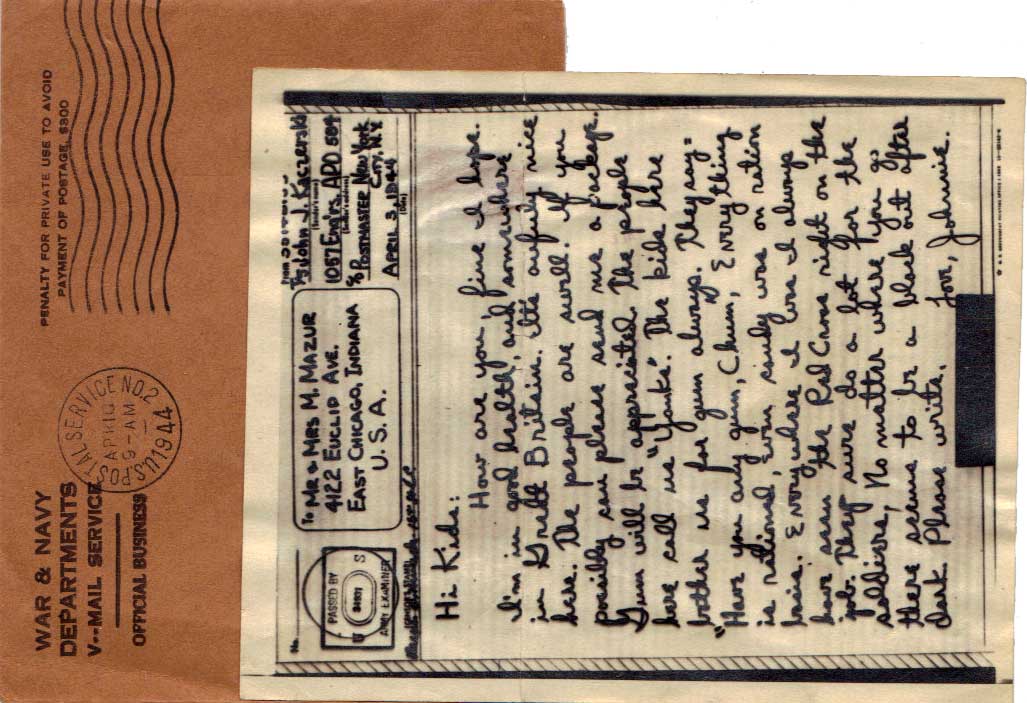 WAR & NAVY
DEPARTMENTS
V--MAIL SERVICE
OFFICIAL BUSINESS
U.S. POSTAL SERVICE NO. 2
APR 10
9-AM
1944
PENALTY FOR PRIVATE USE TO AVOID
PAYMENT OF POSTAGE, $300
No.
PASSED BY
U S
ARMY EXAMINER
To MR & MRS M. MAZUR
4122 EUCLID AVE.
EAST CHICAGO, INDIANA
U. S. A.
From
T/5 John J. Kaczerski
(Sender's name)
108TH Engirs. APO 584
(Sender's address)
% Postmaster New York
City, N.Y.
APRIL 3, 1944
(Date)
Hi Kids:
How are you, fine I hope.
I'm in good health, and somewhere
in Great Britain. It's awfuly nice
here. The people are swell. If you
possibly can please send me a package.
Gum will be appreciated. The people
here call us "Yanks". The kids here
bother us for gum always. They say=
"Have you any gum, Chum," Every thing
is rationed, even rindy was on ration
basis. Every where I was I always
have seen the Red Cross right on the
job. They sure do a lot for the
soldiers, No matter where you go
there seems to be a black out after
dark. Please write.
Love, Johnnie.